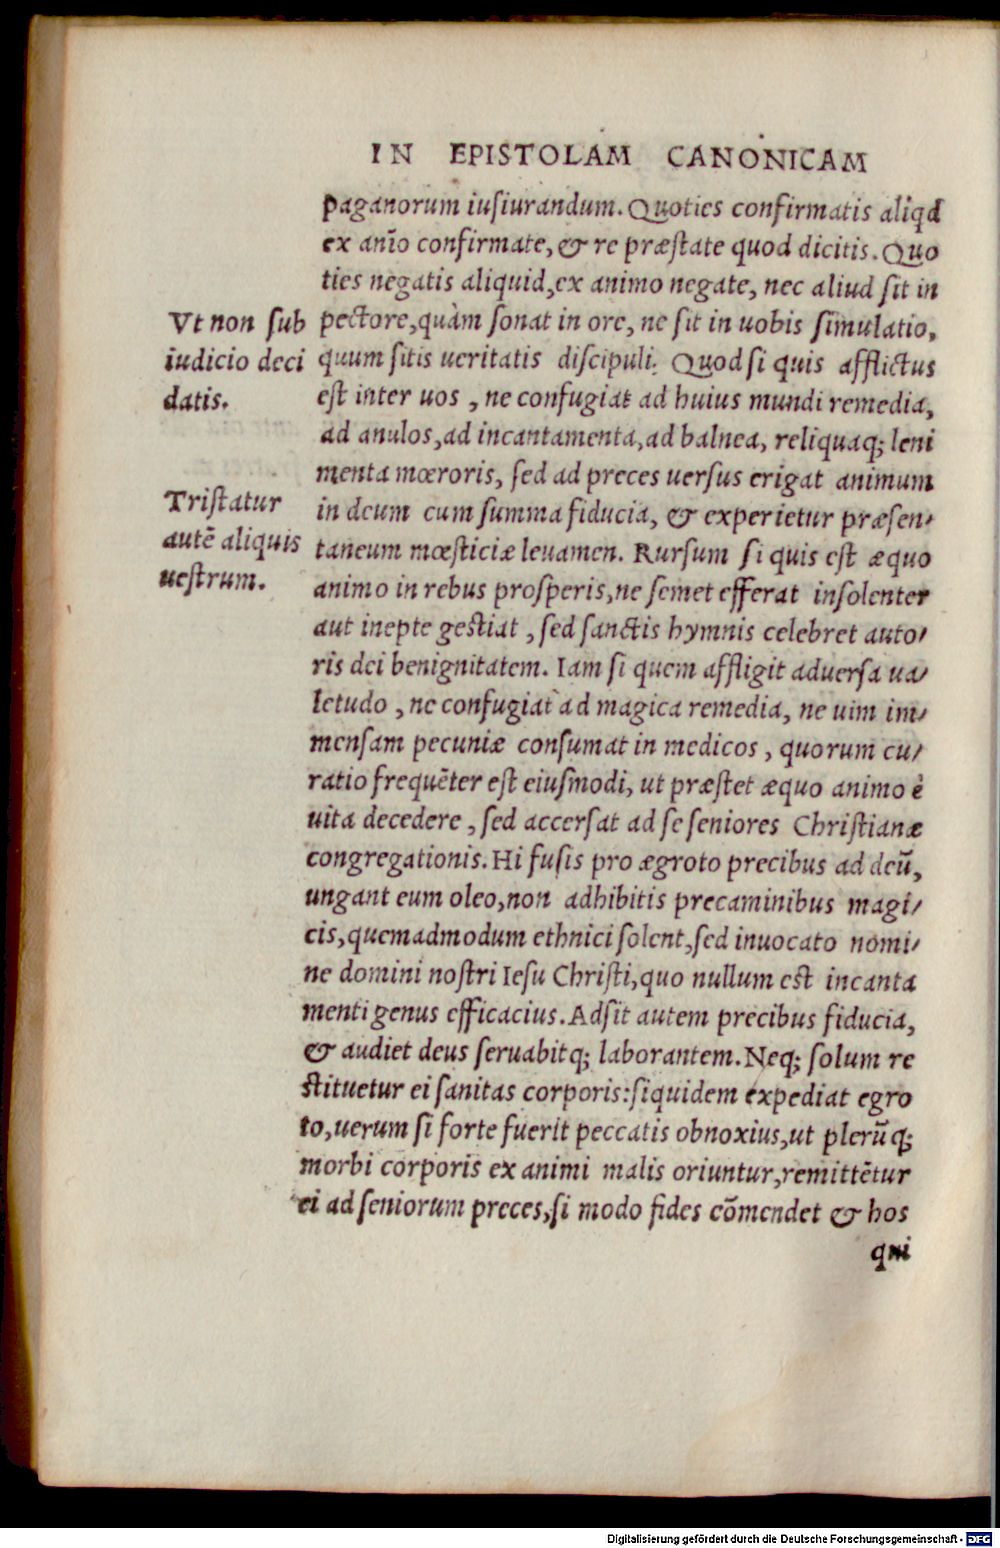 IN EPISTOLAM CANONICAM
paganorum iusiurandum. Quoties confirmatis aliqd
ex anīo confirmate, & re præstate quod dicitis. Quo
ties negatis aliquid, ex animo negate, nec aliud sit in
pectore, quàm sonat in ore, ne sit in uobis simulatio,
quum sitis ueritatis discipuli. Quod si quis afflictus
est inter uos, ne confugiat ad huius mundi remedia,
ad anulos, ad incantamenta, ad balnea, reliquaq; leni
menta mœroris, sed ad preces uersus erigat animum
in deum cum summa fiducia, & experietur præsen/
taneum mœsticiæ leuamen. Rursum si quis est æquo
animo in rebus prosperis, ne semet efferat insolenter
aut inepte gestiat, sed sanctis hymnis celebret auto/
ris dei benignitatem. Iam si quem affligit aduersa ua/
letudo, ne confugiat ad magica remedia, ne uim im/
mensam pecuniæ consumat in medicos, quorum cu/
ratio frequēter est eiusmodi, ut præstet æquo animo è
uita decedere, sed accersat ad se seniores Christianæ
congregationis. Hi fusis pro ægroto precibus ad deū,
ungant eum oleo, non adhibitis precaminibus magi/
cis, quemadmodum ethnici solent, sed inuocato nomi/
ne domini nostri Iesu Christi, quo nullum est incanta
menti genus efficacius. Adsit autem precibus fiducia,
& audiet deus seruabitq; laborantem. Neq; solum re
stituetur ei sanitas corporis: siquidem expediat egro
to, uerum si forte fuerit peccatis obnoxius, ut plerūq;
morbi corporis ex animi malis oriuntur, remittētur
ei ad seniorum preces, si modo fides cōmendet & hos
qui
Vt non sub
iudicio deci
datis.
Tristatur
autē aliquis
uestrum.
Digitalisierung gefördert durch die Deutsche Forschungsgemeinschaft - DFG